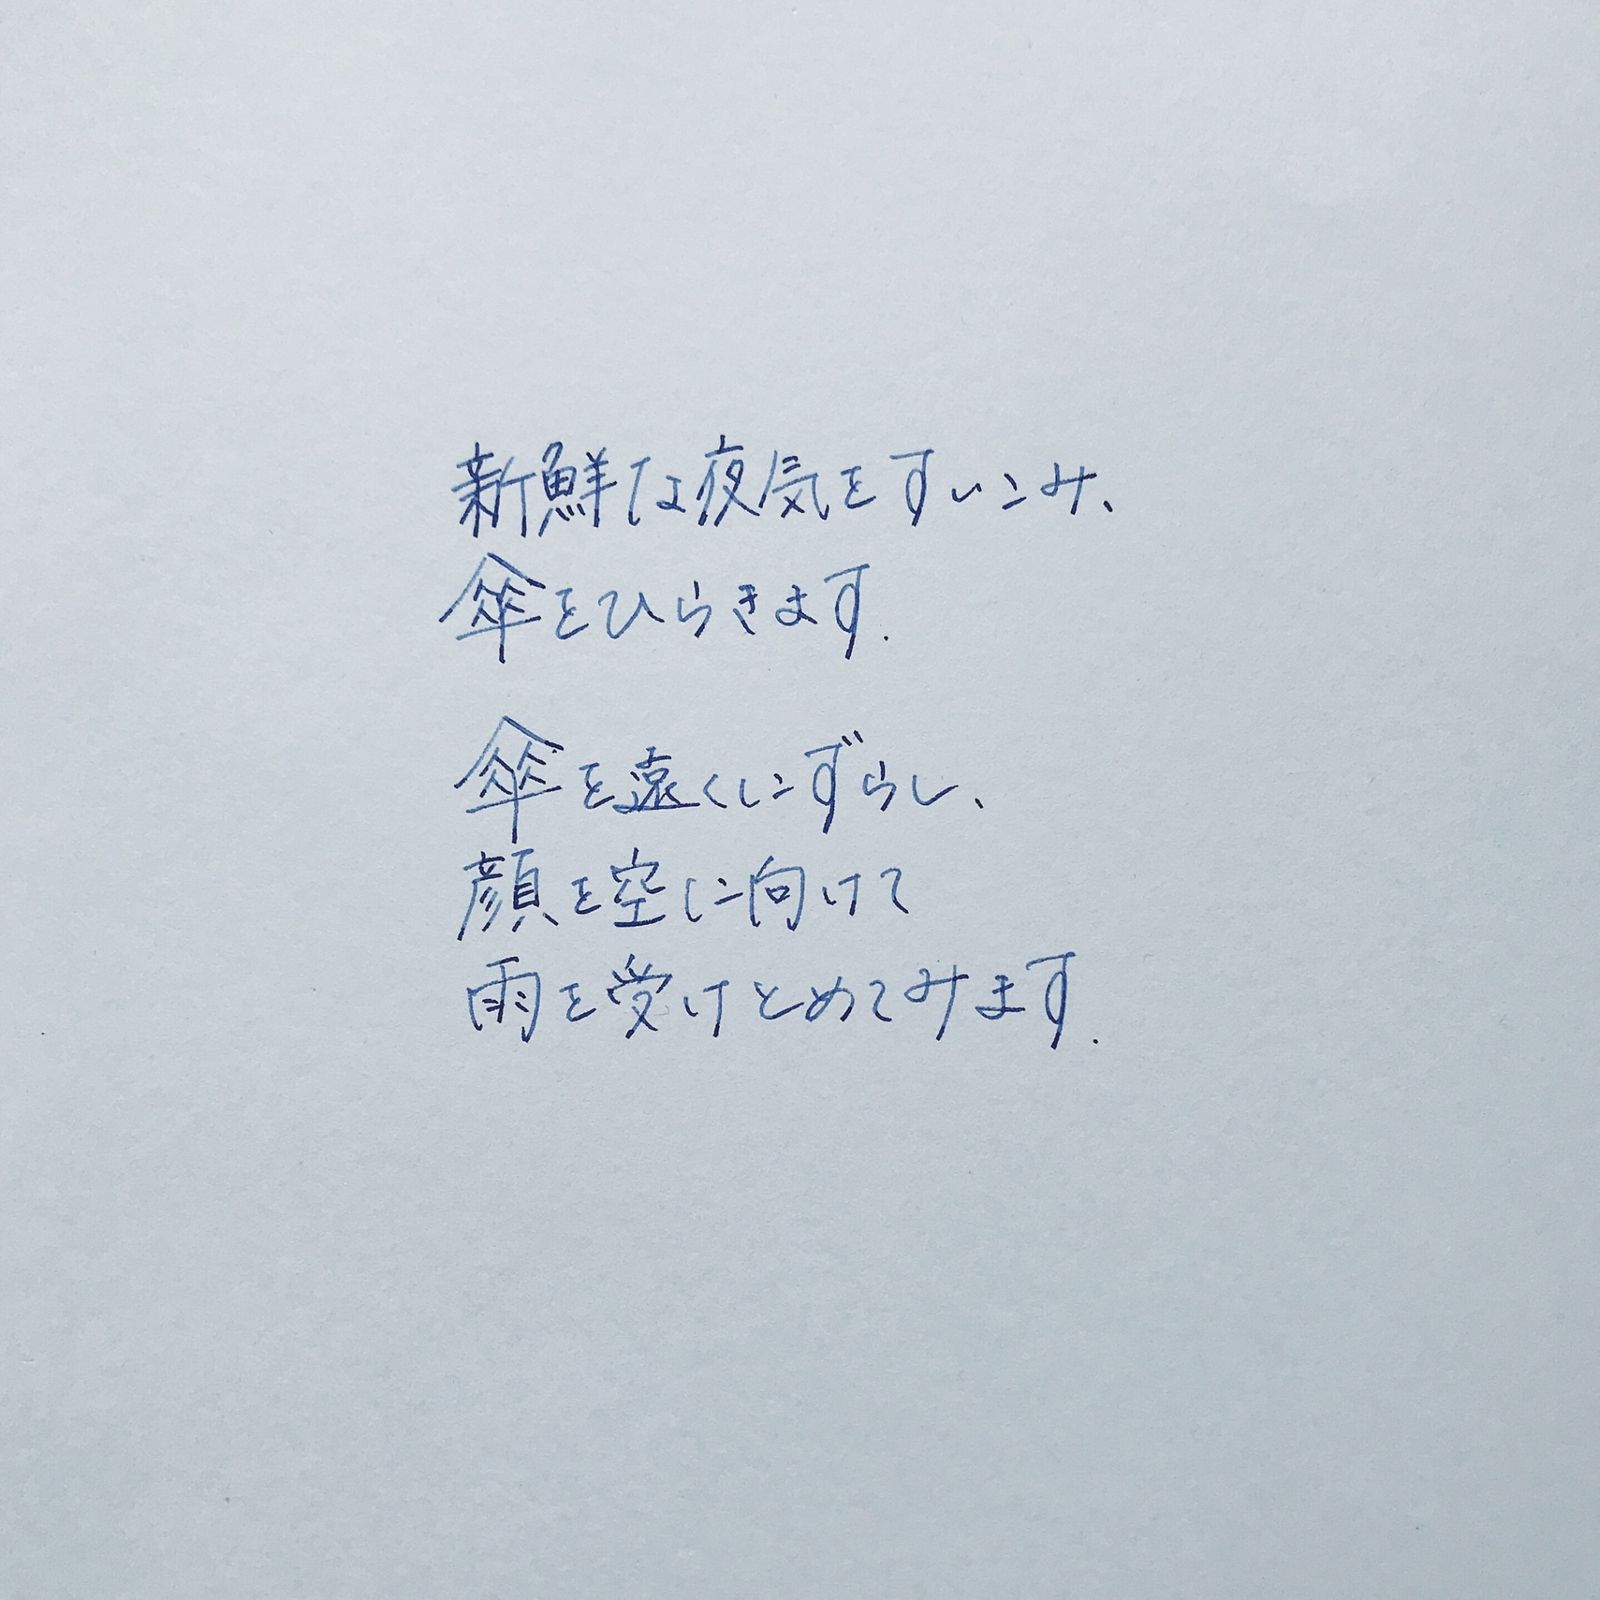 新鮮な夜気をすいこみ、
傘をひらきます.
傘を遠くにずらし、
顔を空に向けて
雨を受けとめてみます.